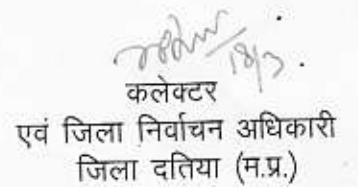 18/3.
कलेक्टर
एवं जिला निर्वाचन अधिकारी
जिला दतिया (म.प्र.)